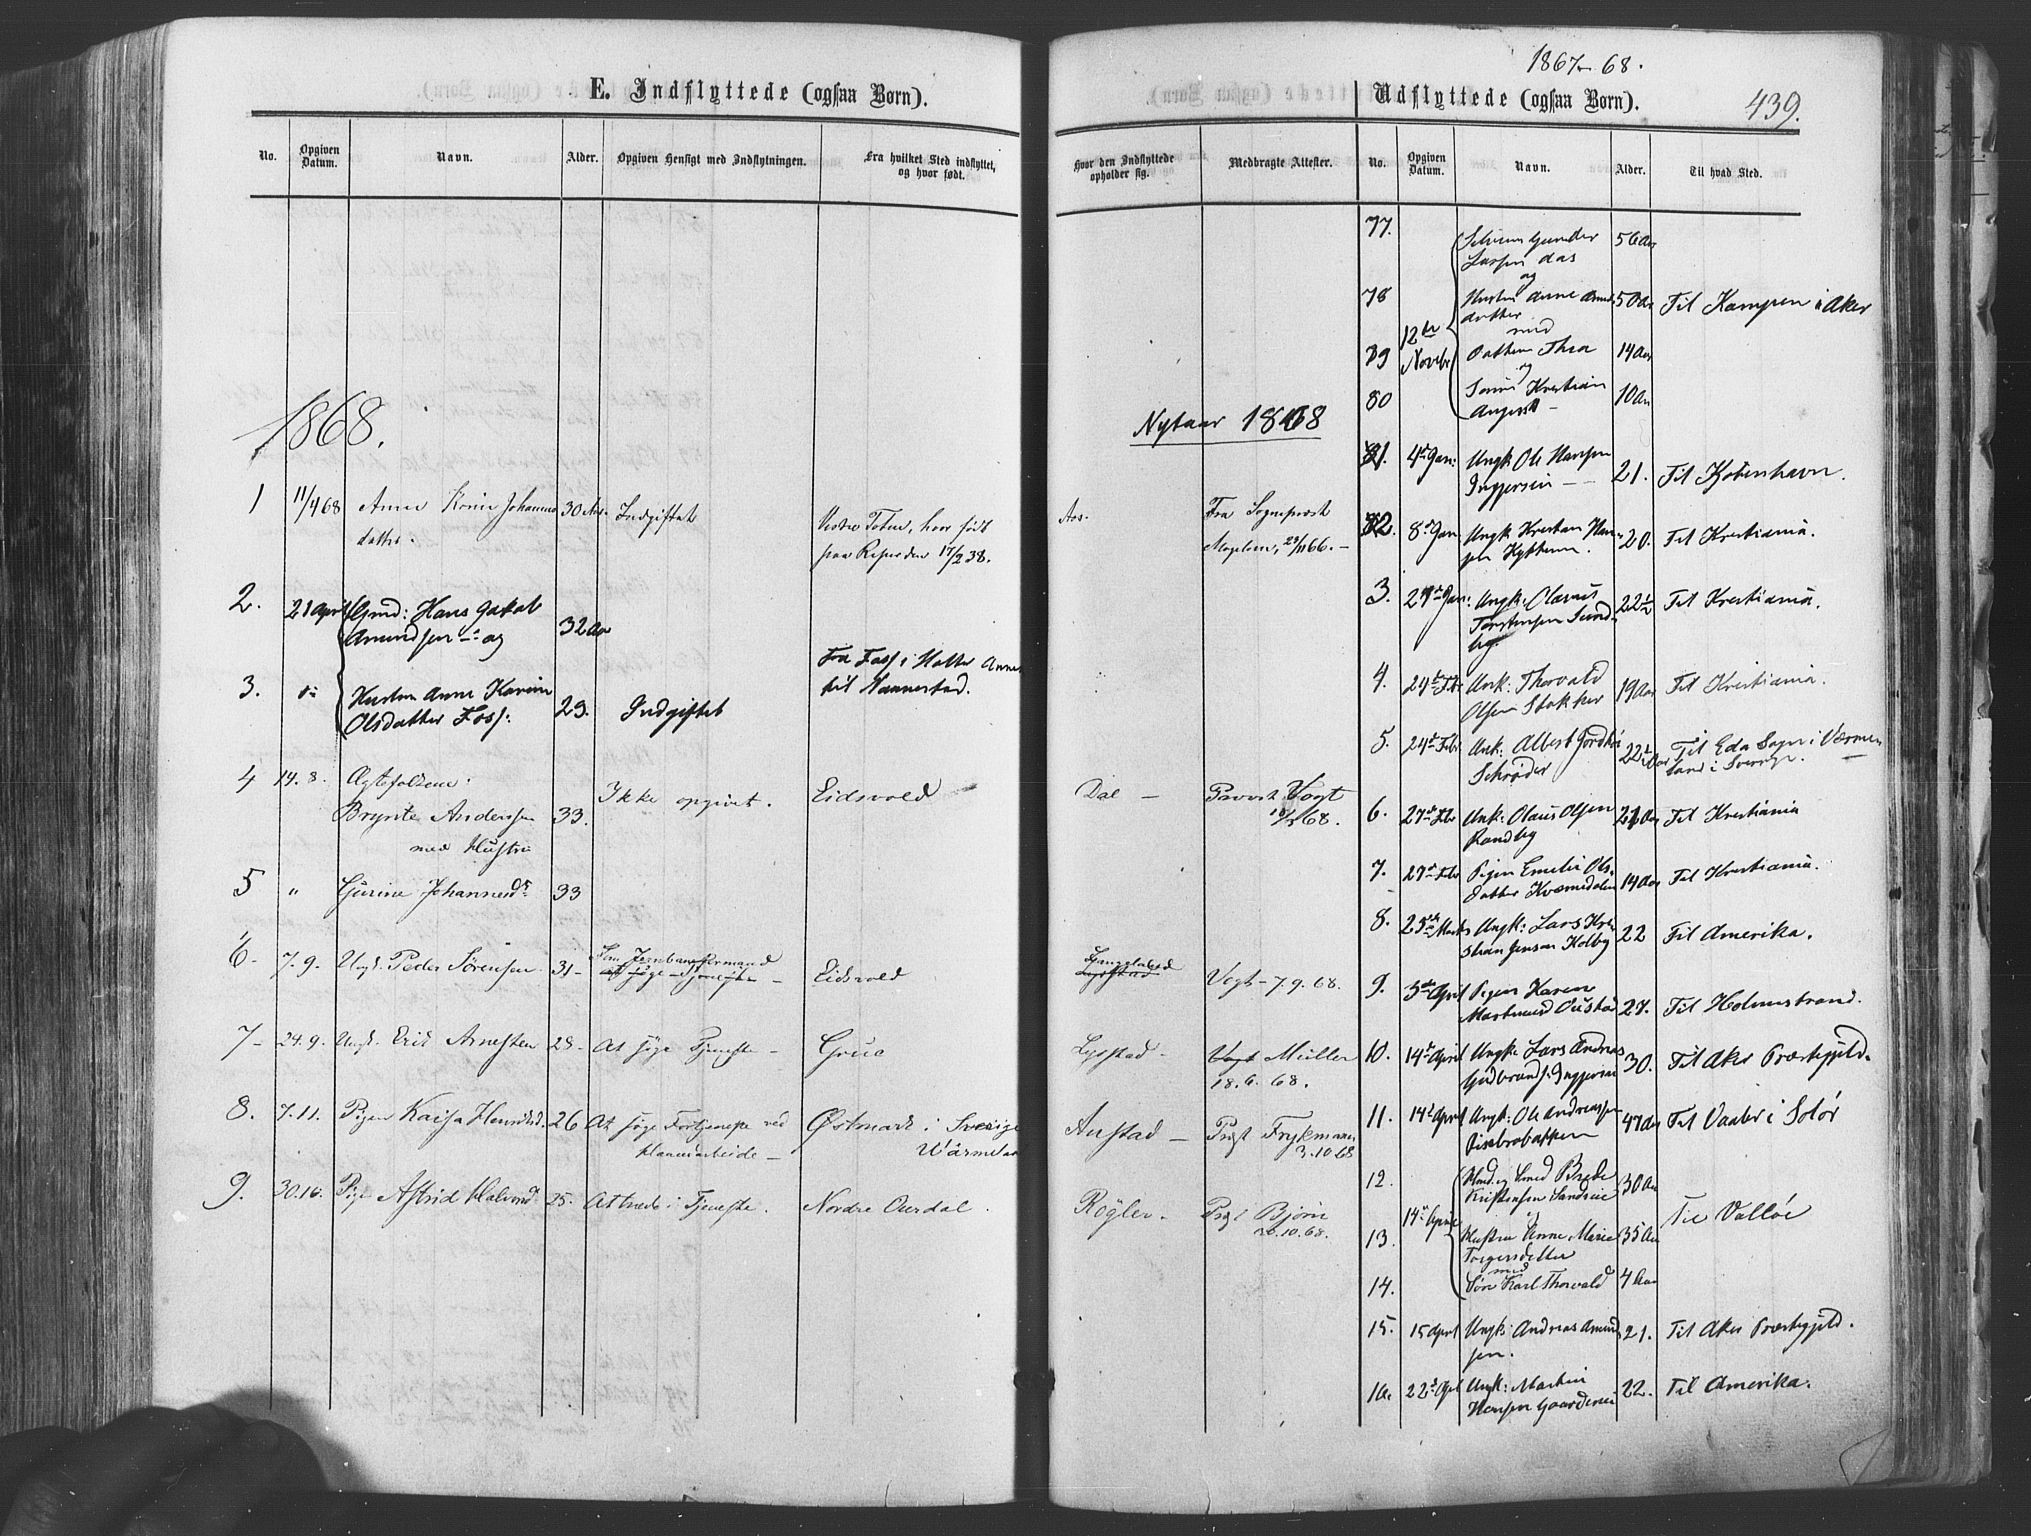 1867-68.
439.
E. Indflyttede (ogsaa Børn).
No.
Opgiven Datum.
Navn.
Alder.
Opgiven Hensigt med Indflytningen.
Fra hvilket Sted indflyttet,
og hvor født.
Hvor den Indflyttede
opholder sig.
Medbragte Attester.
1868.
1 11/4 68 Anne Johannes 30 Aar. Indgiftet Vestre Toten, hvor født Aas. Fra Sogneprest
datter. paa 17/2 38. 23/11 66. –
2. 21 April Gmd: Hans Jakob
Amundsen – og 32 Aar
3. Hustru Anne Karine 29. Indgiftet Fra Foss i
Olsdatter Foss: til Nannestad.
4 14. 8. Ægtefolkene:
Brynte Andersen 33. Ikke opgivet. Eidsvold Dal – Provst Vogt
med Hustru 68.
5 " Gurine Johannesd. 33
6- 7. 9. Ungk. Peder Sørensen 31- Som Jernbaneformand Eidsvold Vogt – 7. 9. 68.
7- 24. 9. Ungk. Erik Arnesten 28- At søge Tjeneste – Grue Lysstad – Vogt Müller
18. 6. 68.
8. 7. 11. Pigen Kaisa Henriksd. 26 At søge Fortjeneste ved Østmark i Sverige Austad – Prgt Frykman
Haandarbeide – Wärmeland 3. 10 68
9. 30. 10. Pige Astrid Halvorsd. 25. At træde i Tjeneste. Nordre Ourdal. Røgler. Prgt Bjørn
20. 10. 68.
Udflyttede (ogsaa Børn).
No.
Opgiven Datum.
Navn.
Alder.
Til hvad Sted.
77. Gunder 56 Aar
Larsen
og
78 Hustru Anne 50 Aar Til Kampen i Aker
datter
med
12te Novbr
79 Datteren Thea 14 Aar
og
80 Sønnen Kristian 10 Aar
August –
Nytaar 1868
1. 4de Jan: Ungk Ole Hansen 21. Til Kjøbenhavn.
2. 8de Jan. Ungk Kristian Hansen 20. Til Kristiania.
3. Jan: Ungk: Olavus 22½ Til Kristiania.
Torstensen Sundby.
4. 24de Febr Unk: Thorvald 19 Aar Til Kristiania.
Olsen Stokker
5. 24de Febr Unk: Albert 22½ Aar Til Eda Sogn i Værmeland i Sverige.
Schrøder
6. 27de Febr Unk: Olaus Olsen 21 Aar Til Kristiania
Randby
7. 27de Febr Pigen Emelie Olsdatter 14 Aar Til Kristiania.
8. 25de Marts Ungk: Lars Kristian Jensen Kolby 22 Til Amerika.
9. 3de April Pigen Karen 27. Til Holmestrand.
10. 14de April Ungk: Lars Andreas 30. Til Aker Præstegjeld.
11. 14de April Ungk: Ole Andreassen 47 Aar Til Vaaler i Solør
12. 30 Aar
14de April
13. Hustru Anne Marie 35 Aar Til Valløe
Torgersdatter
med
14. Søn Karl Thorvald 4 Aar
15. 15 April Ungk: Andreas Amundsen. 21. Til Aker Præstegjeld.
16. 22de April Ungk: Martin 22. Til Amerika.
Hansen